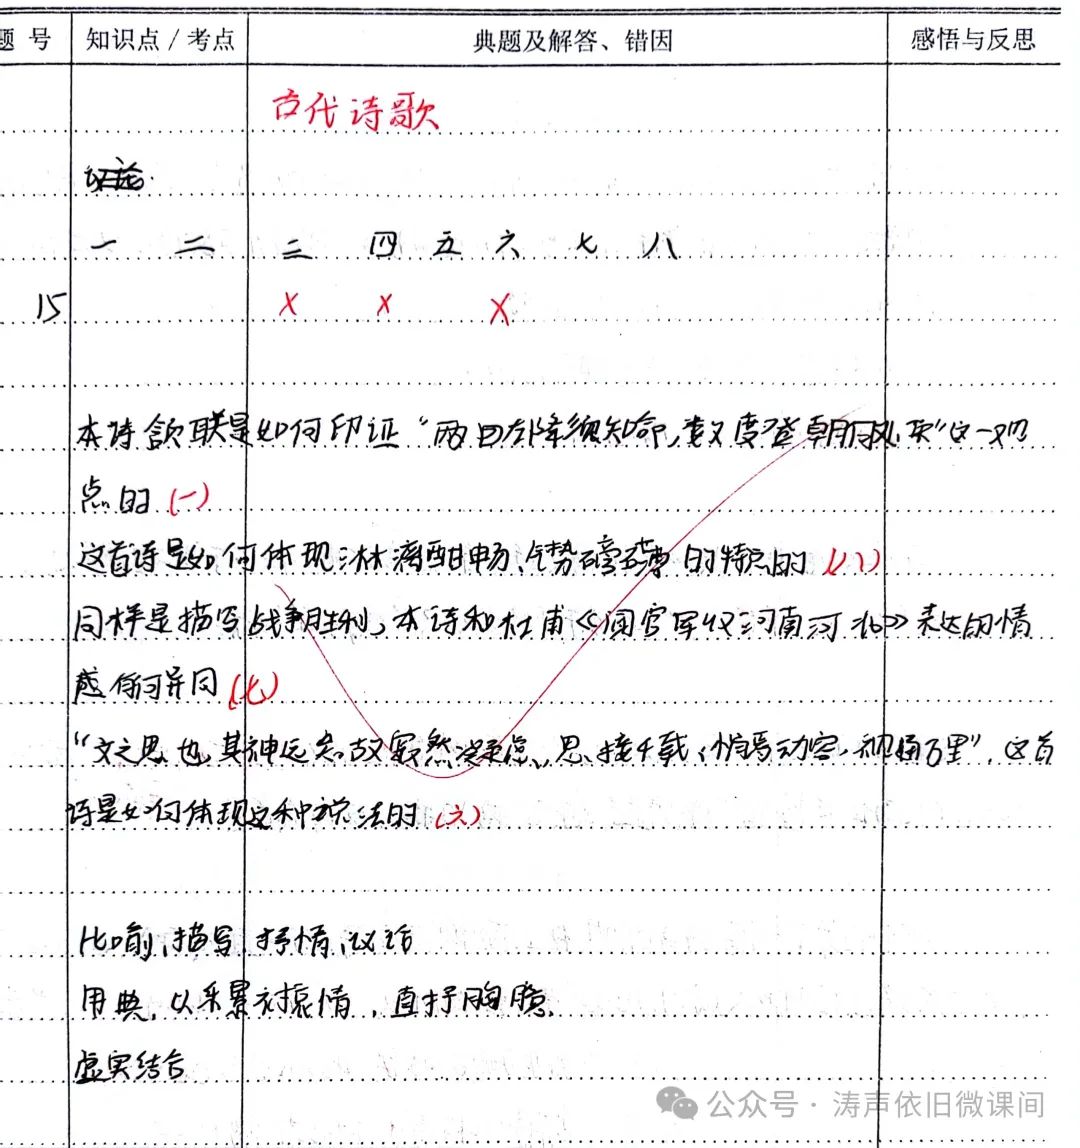 题 号 知识点/考点 典题及解答、错因 感悟与反思
古代诗歌
一 二 三 四 五 六 七 八
15 X X X
本诗颔联是如何印证“两句
点的(一)
这首诗是如何体现淋漓酣畅、气势磅礴的特点的(八)
同样是描写战争胜利,本诗和杜甫《闻官军收河南河北》表达的情
感有何异同(七)
“文之思也,其神远矣,故寂然凝虑、思接千载、悄焉动容、视通万里”,这首
诗是如何体现这种说法的(六)
比喻、描写、抒情、议论
用典,以乐景衬哀情,直抒胸臆,
虚实结合
公众号·涛声依旧微课间